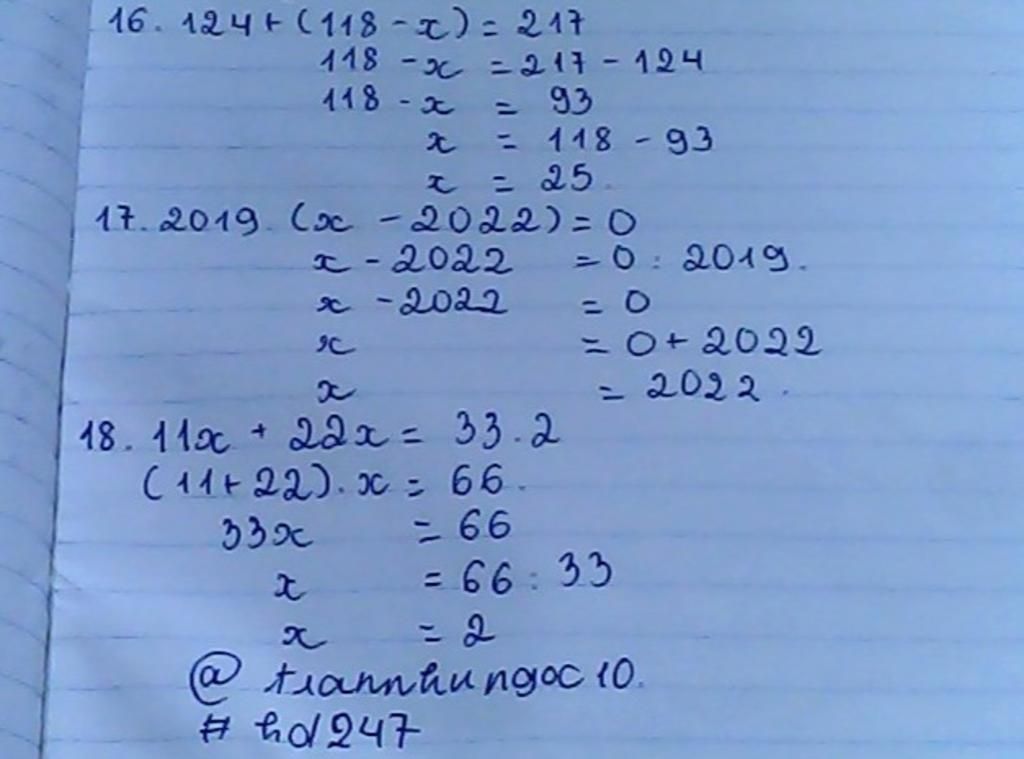 16. 124 + (118 - x) = 217
118 - x = 217 - 124
118 - x = 93
x = 118 - 93
x = 25.
17. 2019. (x - 2022) = 0
x - 2022 = 0 : 2019.
x - 2022 = 0
x = 0 + 2022
x = 2022.
18. 11x + 22x = 33 . 2
(11 + 22). x = 66.
33x = 66
x = 66 : 33
x = 2
@ trannhungoc10.
# hd247